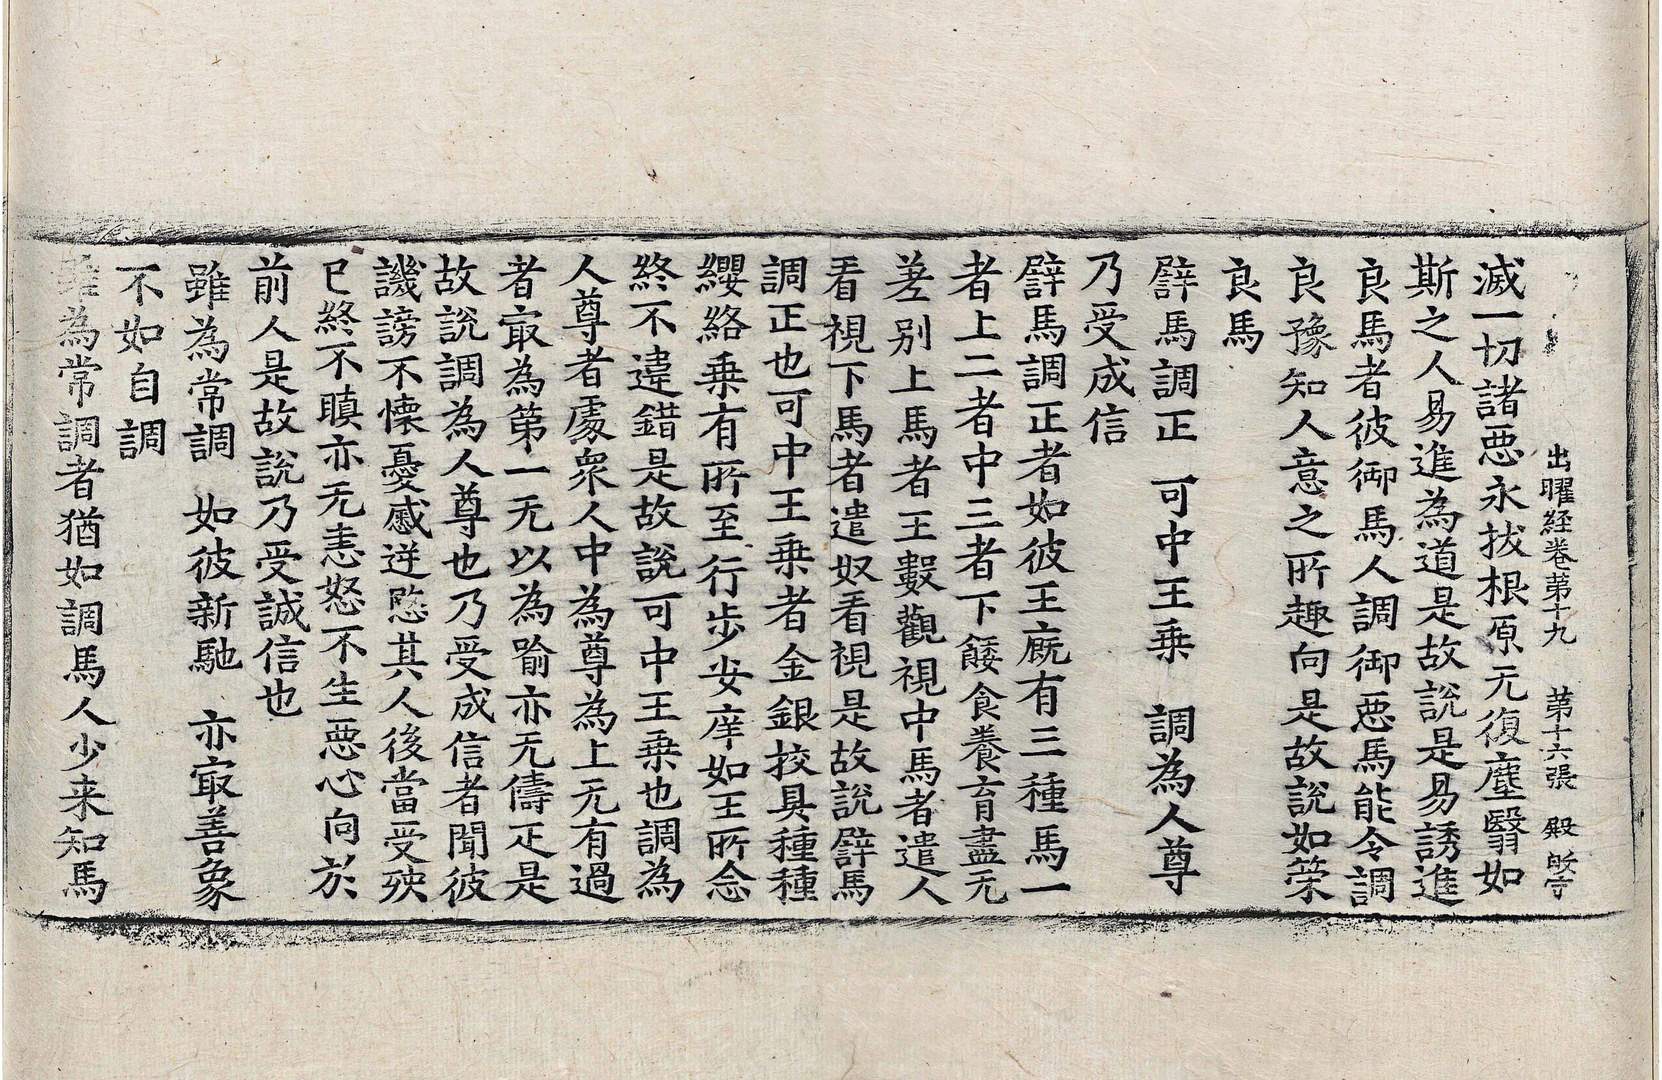 出曜経卷第十九　第十六張　殿
滅一切諸惡永拔根原无復塵翳如
斯之人易進為道是故說是易誘進
良馬者彼御馬人調御惡馬能令調
良豫知人意之所趣向是故說如策
良馬
譬馬調正　可中王乗　調為人尊
乃受成信
譬馬調正者如彼王廐有三種馬一
者上二者中三者下餧食養育盡无
差别上馬者王數觀視中馬者遣人
看視下馬者遣奴看視是故說譬馬
調正也可中王乗者金銀挍具種種
纓絡乗有所至行步安庠如王所念
終不違錯是故說可中王乗也調為
人尊者處衆人中為尊為上无有過
者冣為第一无以為喻亦无儔疋是
故說調為人尊也乃受成信者聞彼
譏謗不懷憂慼迸愍其人後當受殃
已終不瞋亦无恚怒不生惡心向於
前人是故說乃受誠信也
雖為常調　如彼新馳　亦冣善象
不如自調
雖為常調者猶如調馬人少来知馬